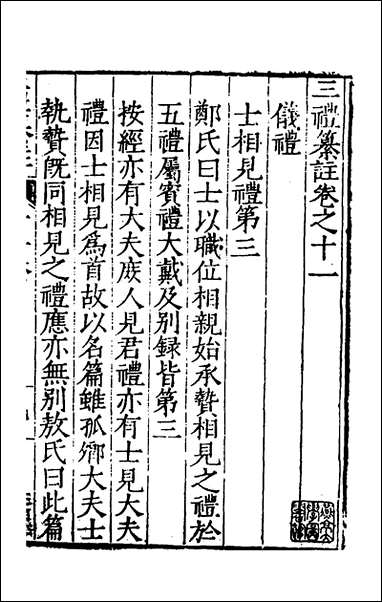 三禮纂註卷之十一
儀禮
士相見禮第三
鄭氏曰士以職位相親始承贄相見之禮於
五禮屬賓禮大戴及別録皆第三
按經亦有大夫庻人見君禮亦有士見大夫
禮因士相見爲首故以名篇雖孤卿大夫士
執贄旣同相見之禮應亦無別敖氏曰此篇